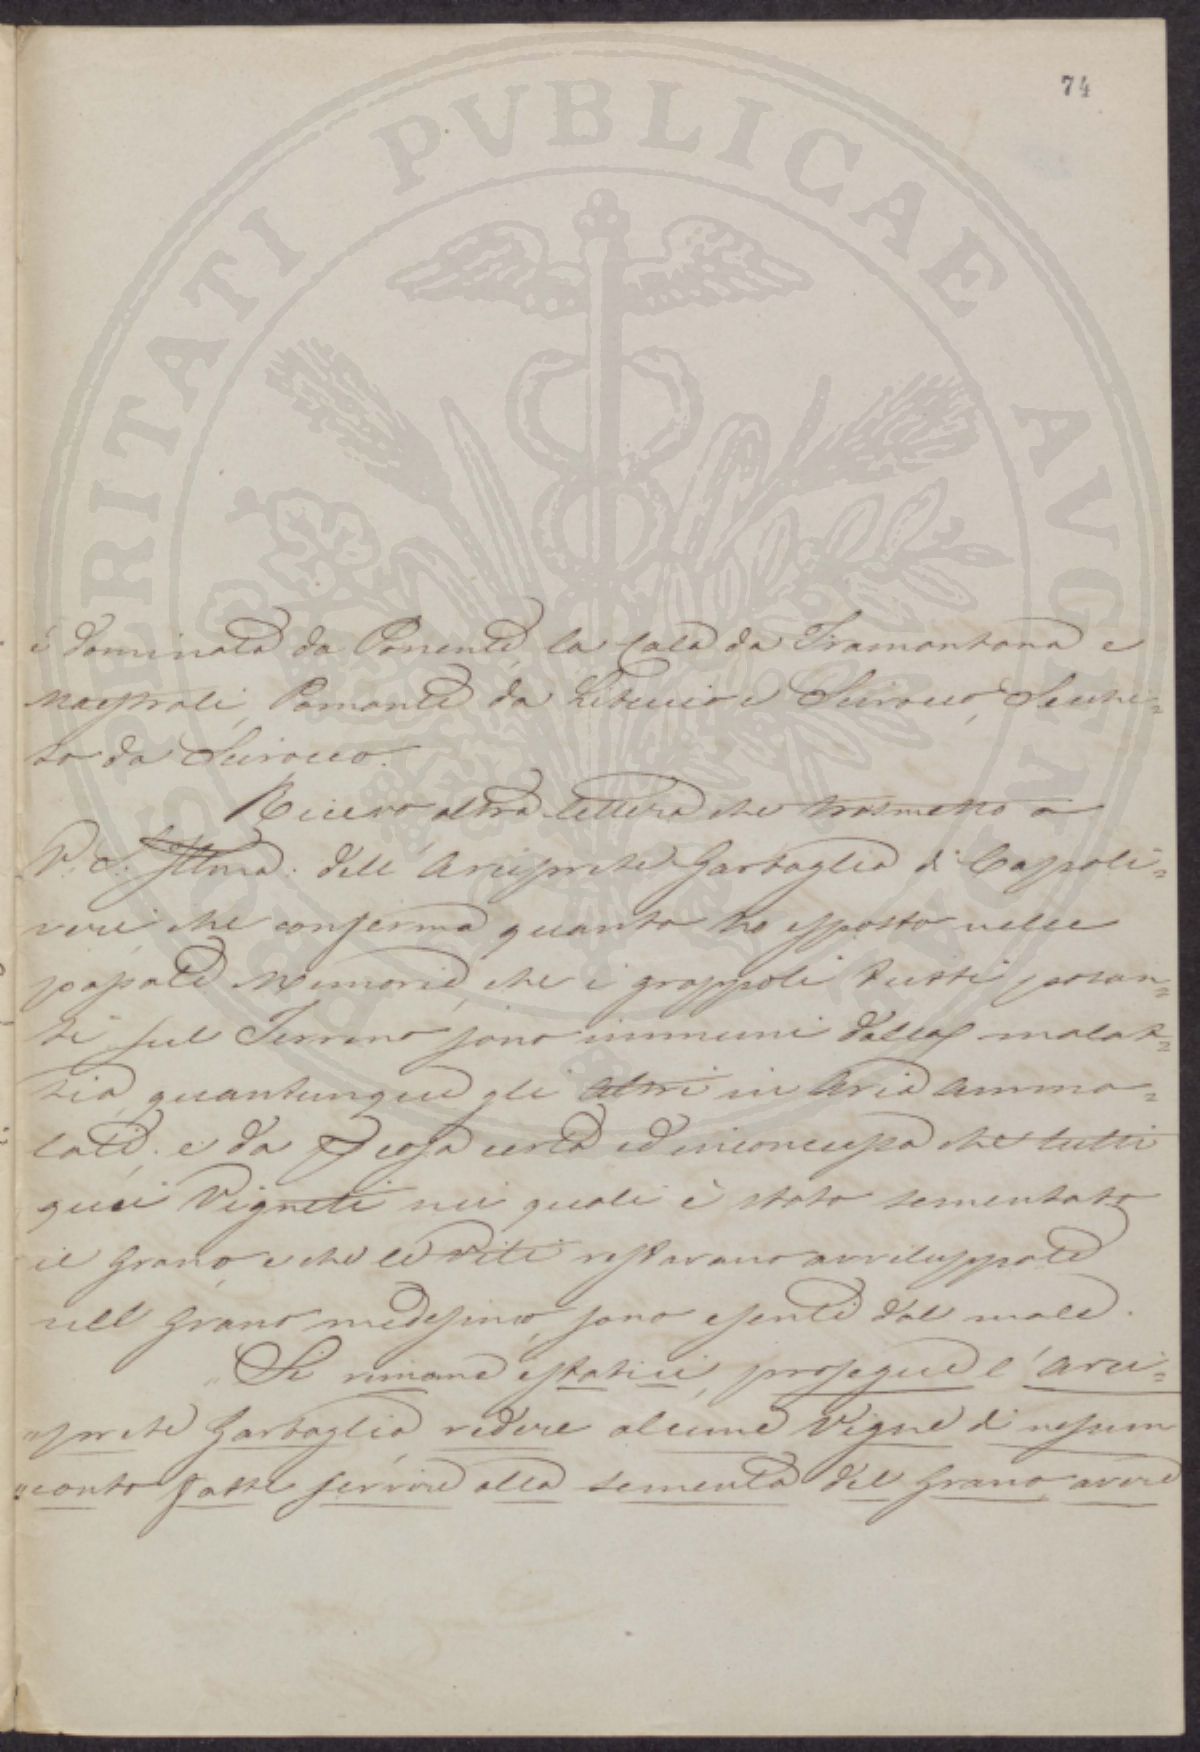 74
PROSPERITATI PVBLICAE AVGENDAE
è dominata da Ponente, la Cala da Tramontana e
Maestrali, Pomonte da Libeccio e Scirocco, Secche=
to da Scirocco.
Ricevo altra lettera che trasmetto a
V. S. Illma. dell' Arciprete Garbaglia di Capoli=
veri, che conferma quanto ho esposto nelle
passate Memorie, che i grappoli tutti posan=
ti sul Terreno sono immuni dalla malat=
tia, quantunque gli altri in Aria amma=
lati; e da cosa certa ed inconcussa che tutti
quei Vigneti nei quali è stato sementato
il Grano, e che le viti restavano avviluppate
nell Grano medesimo, sono esenti dal male.
" Si rimane estatici, prosegue l'Arci=
"prete Garbaglia, vedere alcune Vigne di nessun
"conto fatte servire alla sementa del Grano avere